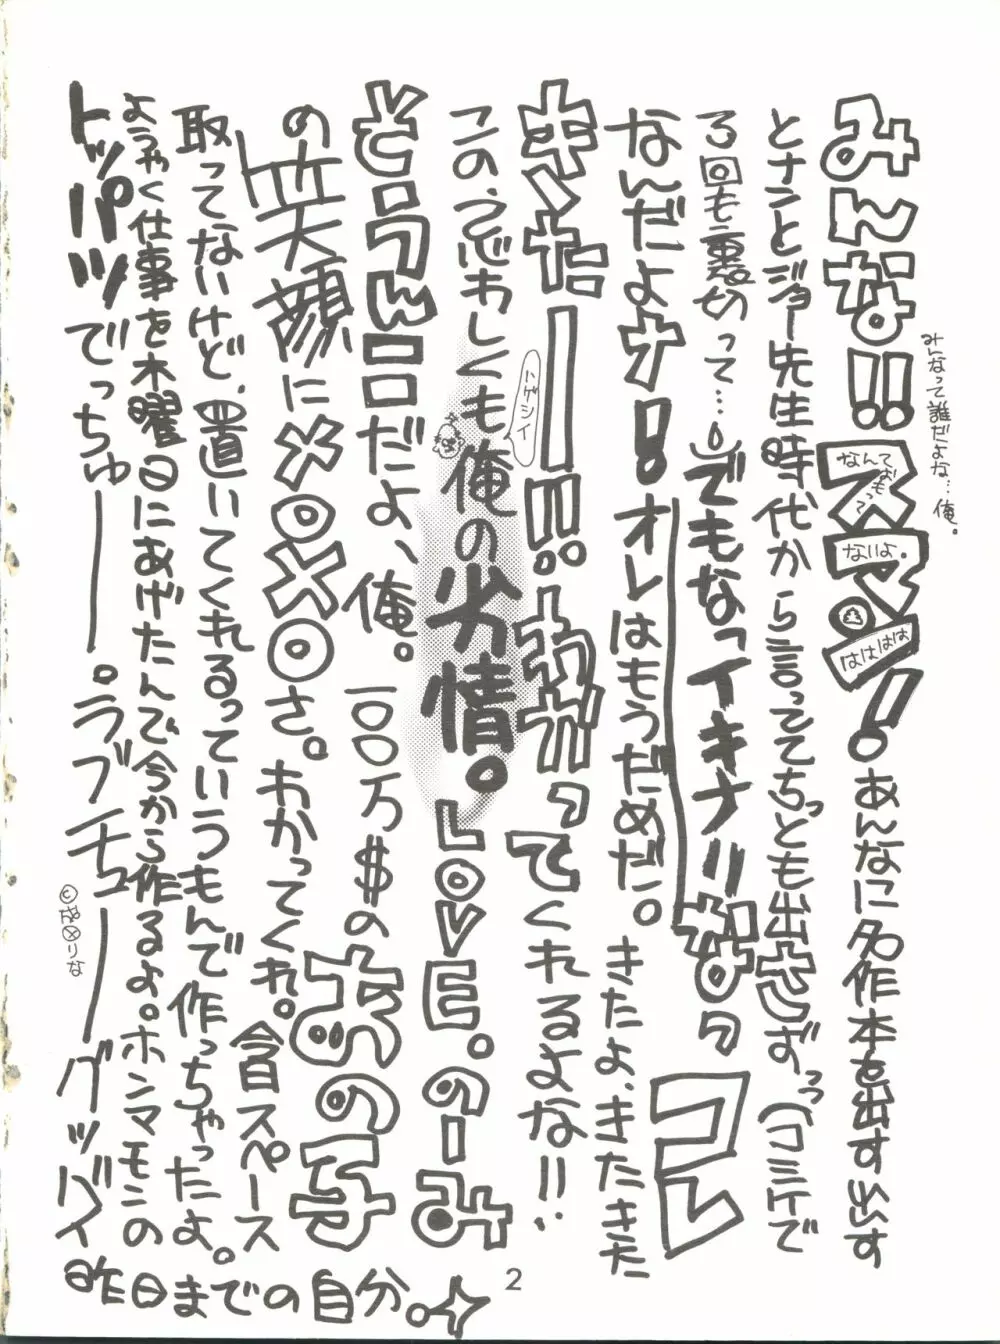 みんな!!スマン!あんなに名作本を出す出す
みんなって誰だよな…俺。
なんて
おもって
ないよ。
はははは
とナントとジョー先生時代から言っててちっとも出さずっっ(コミケで
3回も裏切って…。)でもなっイキナリなっコレ
なんだよナ!オレはもうだめだ。きたよ、きたきた
キタ――!!わかってくれるよな!!
ハゲシイ
この、うごめしくも俺の劣情。LOVE。のーみ
そうんこだよ、俺。一〇〇万$のあの子
の笑顔にメロメロさ。わかってくれ。今日スペース
取ってないけど、置いてくれるっていうもんで作っちゃったよ。
ようやく仕事を木曜日にあげたんで今から作るよ。ホンマモンの
トッパツでっちゅ――。ラブチュ――グッバイ
昨日までの自分。
2